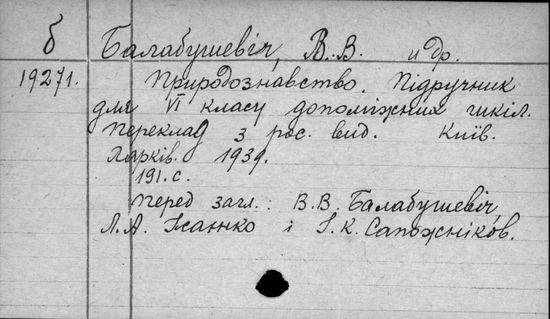 б Балабушевіч, В.В. и др.
19271. Природознавство. Підручник
для VI класу допоміжних шкіл.
Переклад з рос. вид. Київ.
Харків. 1939.
191.с.
Перед загл.: В.В. Балабушевіч,
Л.А. Ісаенко і І.К. Сапожніков.